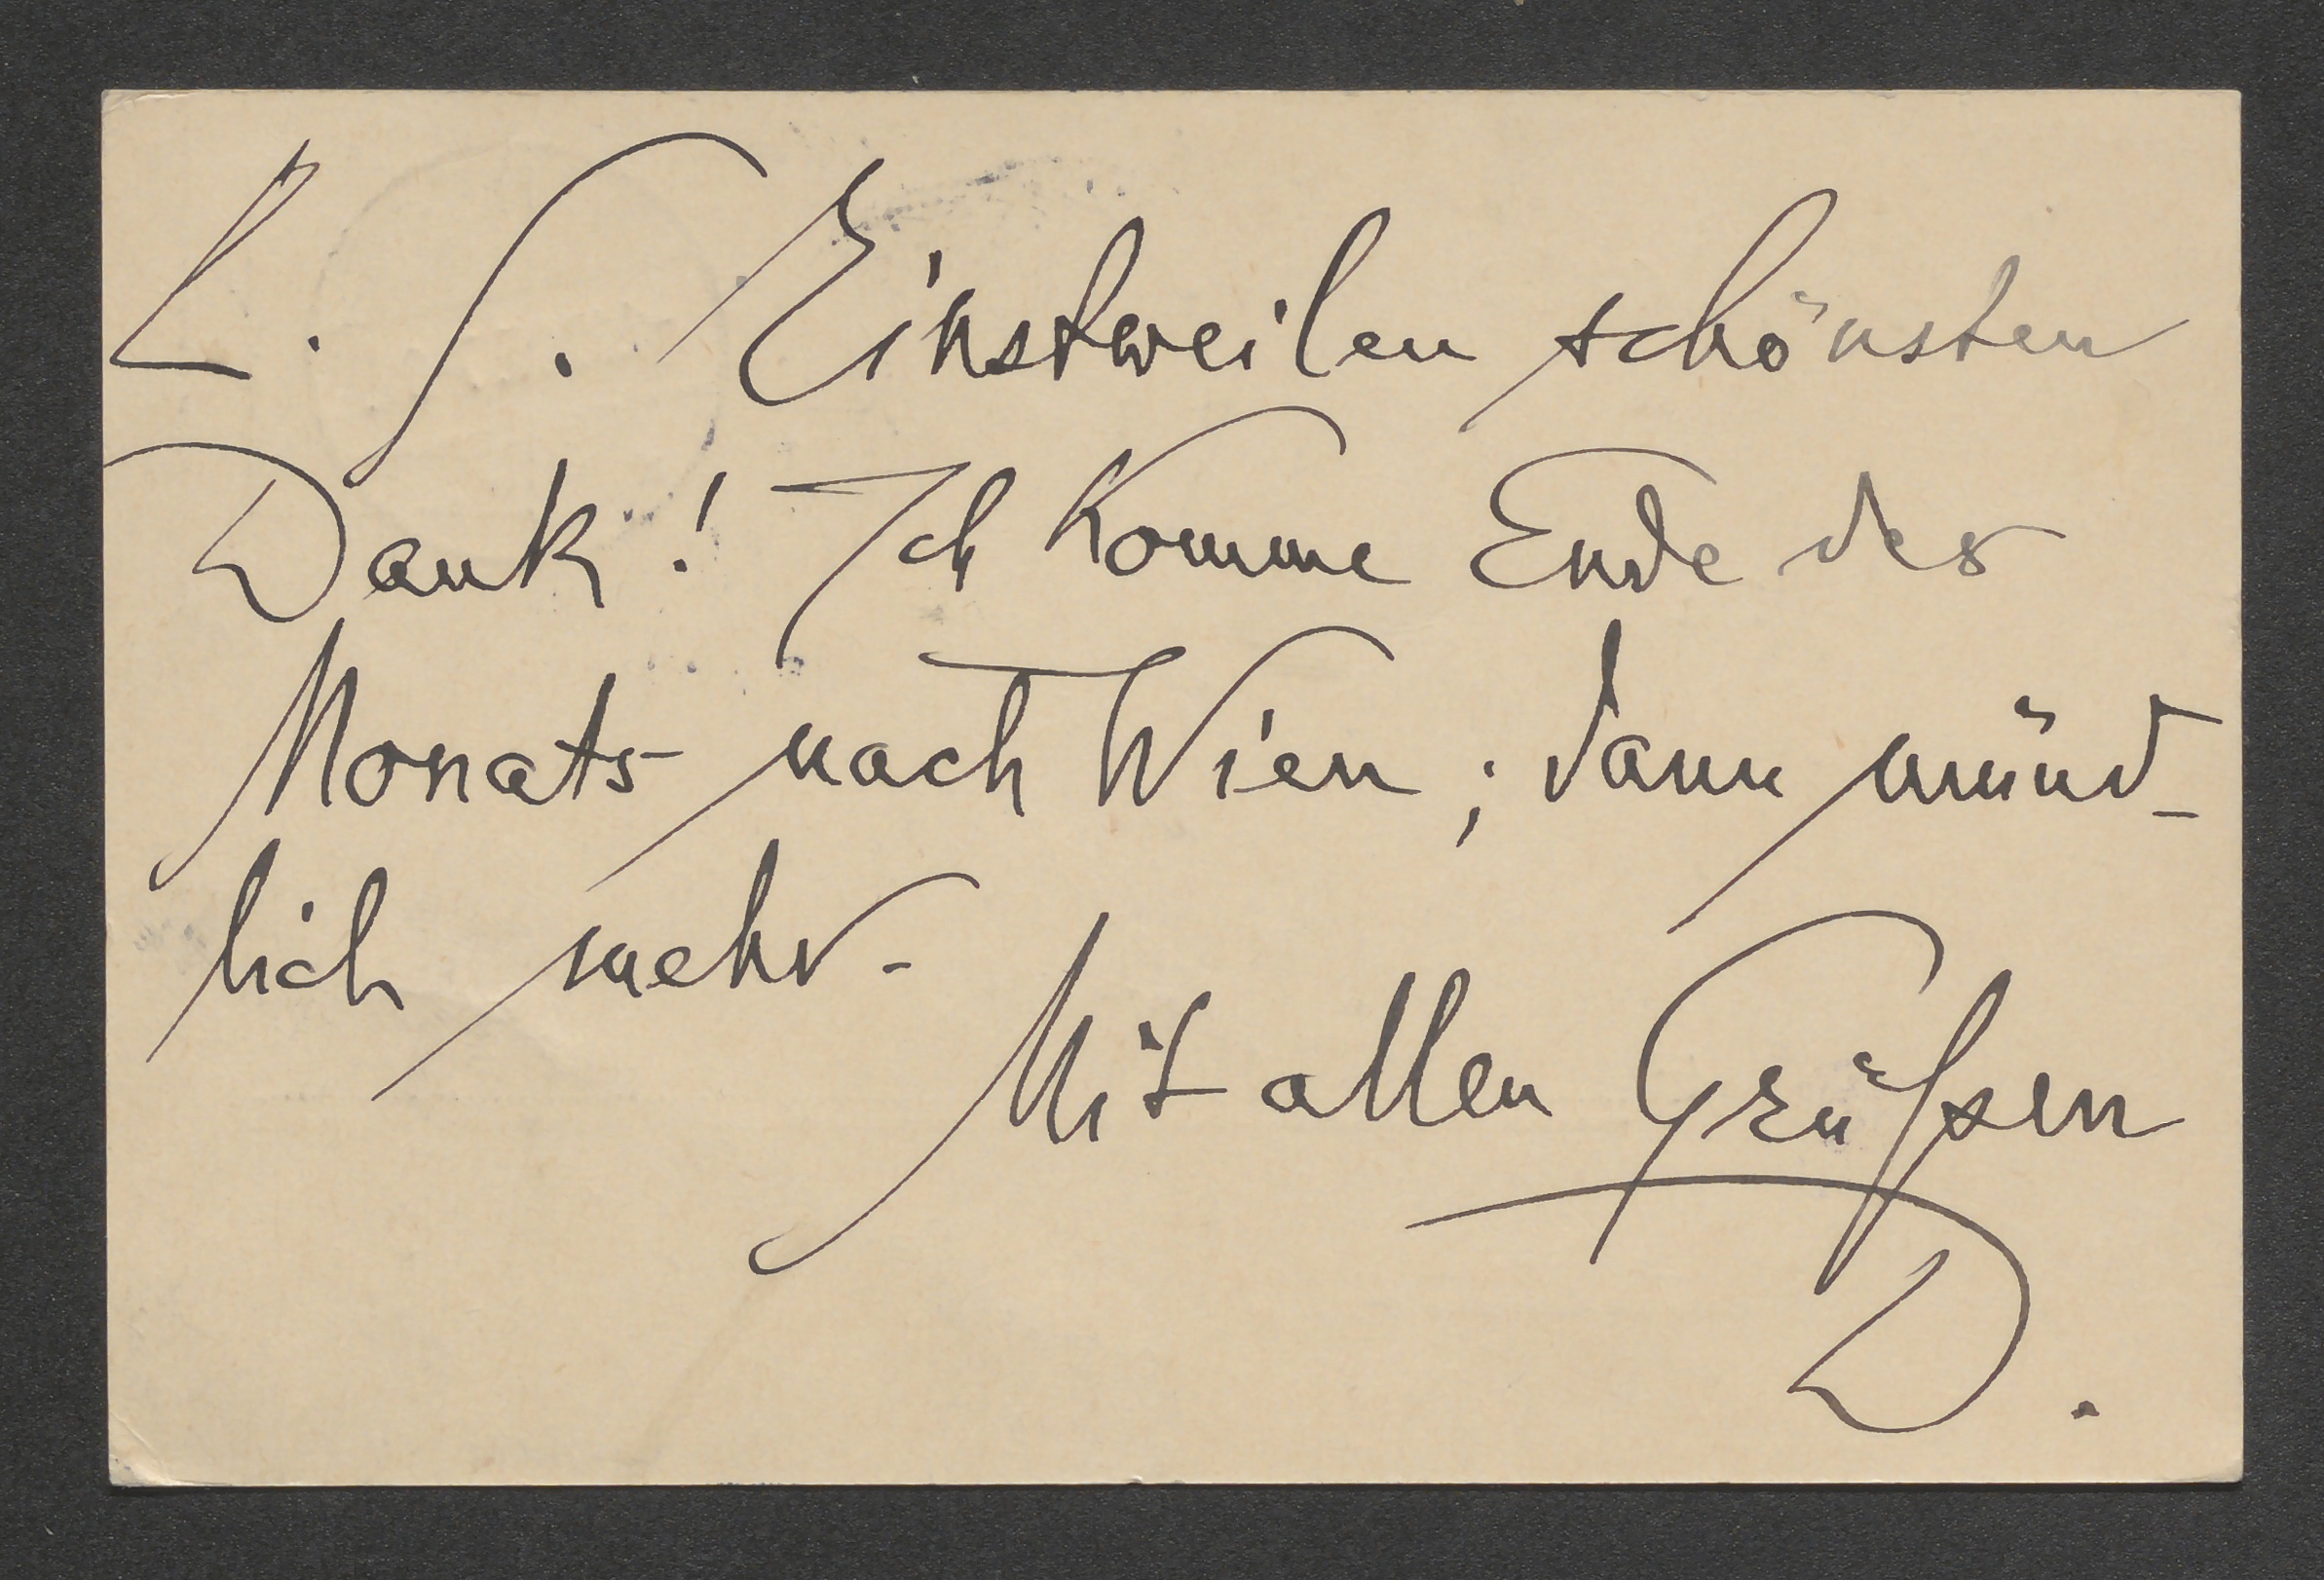 L. S. Einstweilen schönsten
Dank! Ich komme Ende des
Monats nach Wien; dann münd-
lich mehr.
Mit allen Grüßen
D.